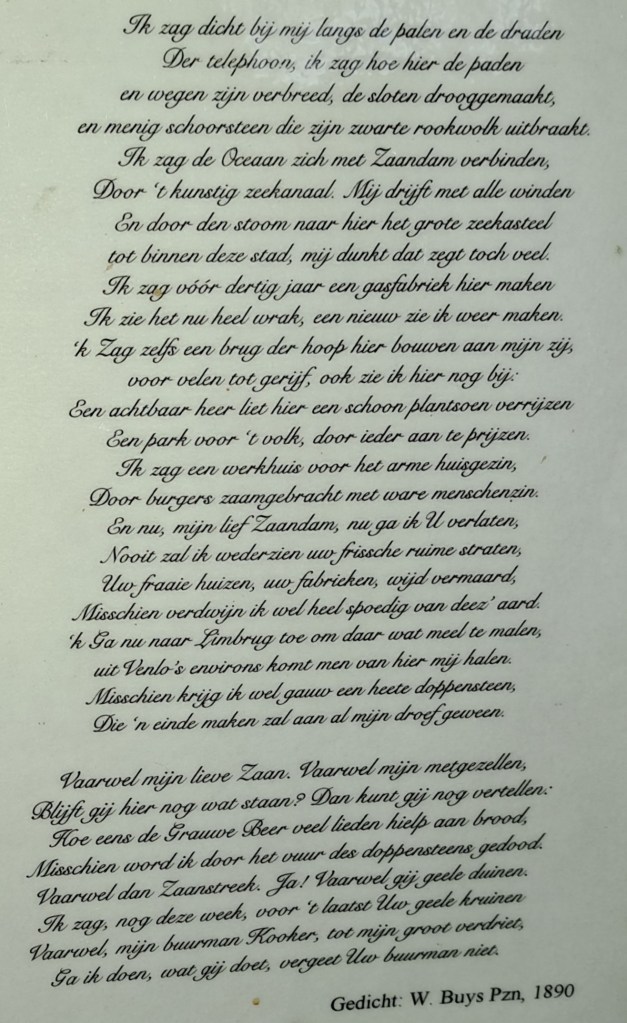 Ik zag dicht bij mij langs de palen en de draden
Der telephoon, ik zag hoe hier de paden
en wegen zijn verbreed, de sloten drooggemaakt,
en menig schoorsteen die zijn zwarte rookwolk uitbraakt.
Ik zag de Oceaan zich met Zaandam verbinden,
Door 't kunstig zeekanaal. Mij drijft met alle winden
En door den stoom naar hier het grote zeekasteel
tot binnen deze stad, mij dunkt dat zegt toch veel.
Ik zag vóór dertig jaar een gasfabriek hier maken
Ik zie het nu heel wrak, een nieuw zie ik weer maken.
'k Zag zelfs een brug der hoop hier bouwen aan mijn zij,
voor velen tot gerijf, ook zie ik hier nog bij:
Een achtbaar heer liet hier een schoon plantsoen verrijzen
Een park voor 't volk, door ieder aan te prijzen.
Ik zag een werkhuis voor het arme huisgezin,
Door burgers zaamgebracht met ware menschenzin.
En nu, mijn lief Zaandam, nu ga ik U verlaten,
Nooit zal ik wederzien uw frissche ruime straten,
Uw fraaie huizen, uw fabrieken, wijd vermaard,
Misschien verdwijn ik wel heel spoedig van deez' aard.
'k Ga nu naar Limbrug toe om daar wat meel te malen,
uit Venlo's environs komt men van hier mij halen.
Misschien krijg ik wel gauw een heete doppensteen,
Die 'n einde maken zal aan al mijn droef geween.
Vaarwel mijn lieve Zaan. Vaarwel mijn metgezellen,
Blijft gij hier nog wat staan? Dan kunt gij nog vertellen:
Hoe eens de Grauwe Beer veel lieden hielp aan brood,
Misschien word ik door het vuur des doppensteens gedood.
Vaarwel dan Zaanstreek. Ja! Vaarwel gij geele duinen.
Ik zag, nog deze week, voor 't laatst Uw geele kruinen
Vaarwel, mijn buurman Kooker, tot mijn groot verdriet,
Ga ik doen, wat gij doet, vergeet Uw buurman niet.
Gedicht: W. Buys Pzn, 1890